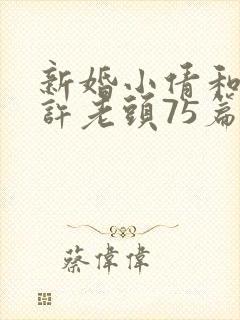 新婚小倩和
許老頭75篇
蔡偉偉